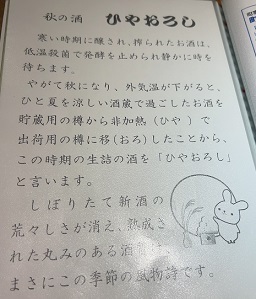 秋の酒 ひやおろし
寒い時期に醸され、搾られたお酒は、
低温殺菌で発酵を止められ静かに時を
待ちます。
やがて秋になり、外気温が下がると、
ひと夏を涼しい酒蔵で過ごしたお酒を
貯蔵用の樽から非加熱(ひや)で
出荷用の樽に移(おろ)したことから、
この時期の生詰の酒を「ひやおろし」
と言います。
しぼりたて新酒の
荒々しさが消え、熟成さ
れた丸みのある酒質は、
まさにこの季節の風物詩です。